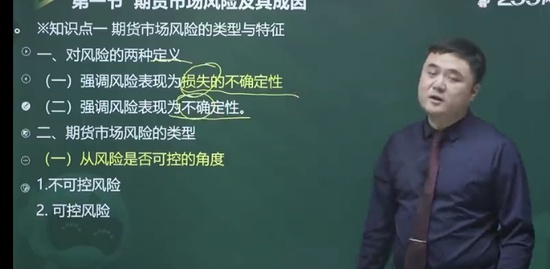 第一节 期货市场风险及其成因
※知识点一 期货市场风险的类型与特征
一、对风险的两种定义
（一）强调风险表现为损失的不确定性
（二）强调风险表现为不确定性。
二、期货市场风险的类型
（一）从风险是否可控的角度
1.不可控风险
2. 可控风险